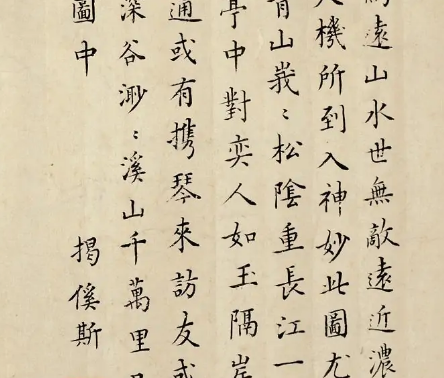 遠山水世無敵遠近濃
機所到入神妙此圖尤
青山峩〻松陰重長江一
亭中對奕人如玉隔岸
通或有携琴來訪友或
深谷渺〻溪山千萬里
圖中
揭傒斯